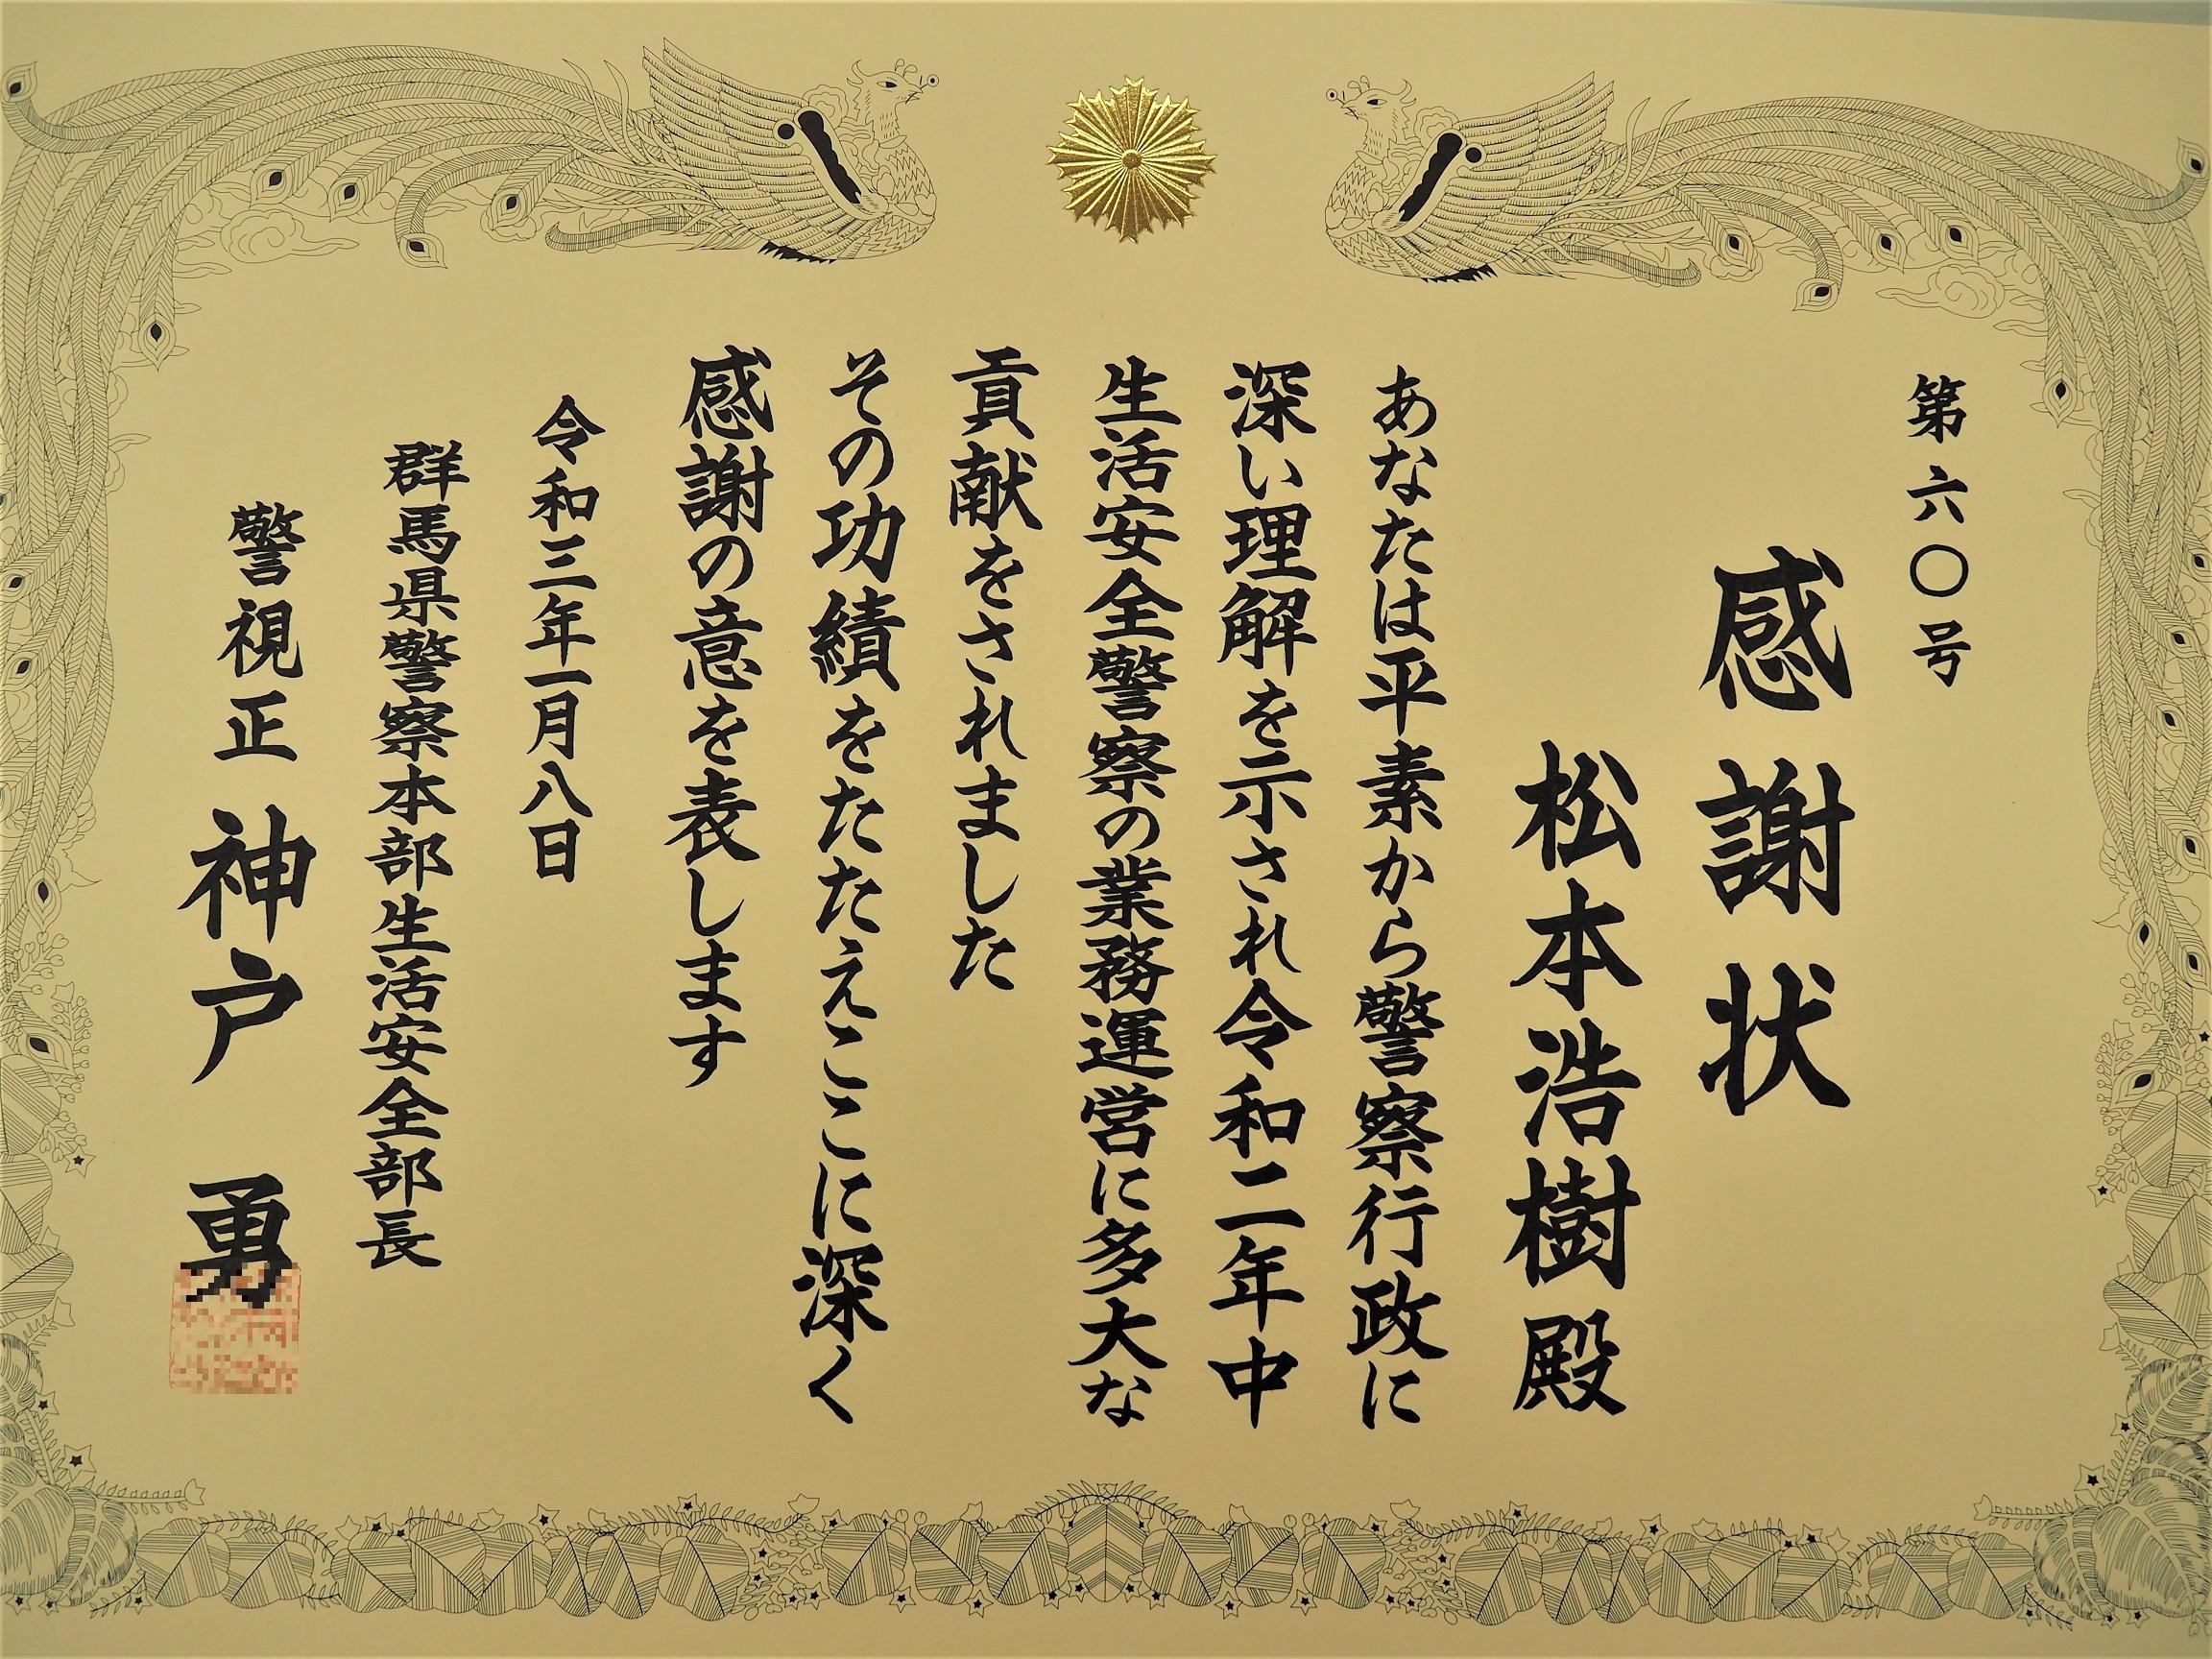 第六〇号
感謝状
松本浩樹殿
あなたは平素から警察行政に
深い理解を示され令和二年中
生活安全警察の業務運営に多大な
貢献をされました
その功績をたたえここに深く
感謝の意を表します
令和三年一月八日
群馬県警察本部生活安全部長
警視正 神戸 勇